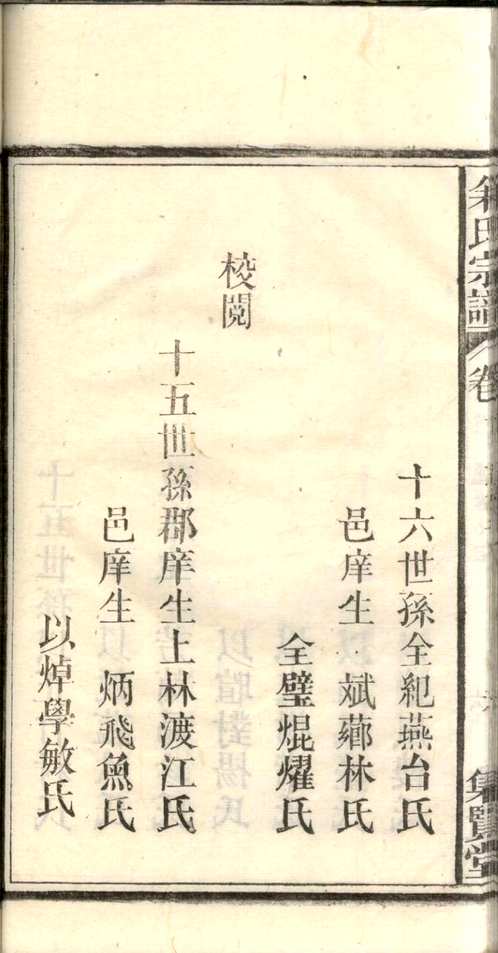 氏宗譜 卷 集賢堂
十六世孫全紀燕台氏
邑庠生 斌薌林氏
全璧焜燿氏
校閱
十五世孫郡庠生上林渡江氏
邑庠生 炳飛魚氏
以焯學敏氏